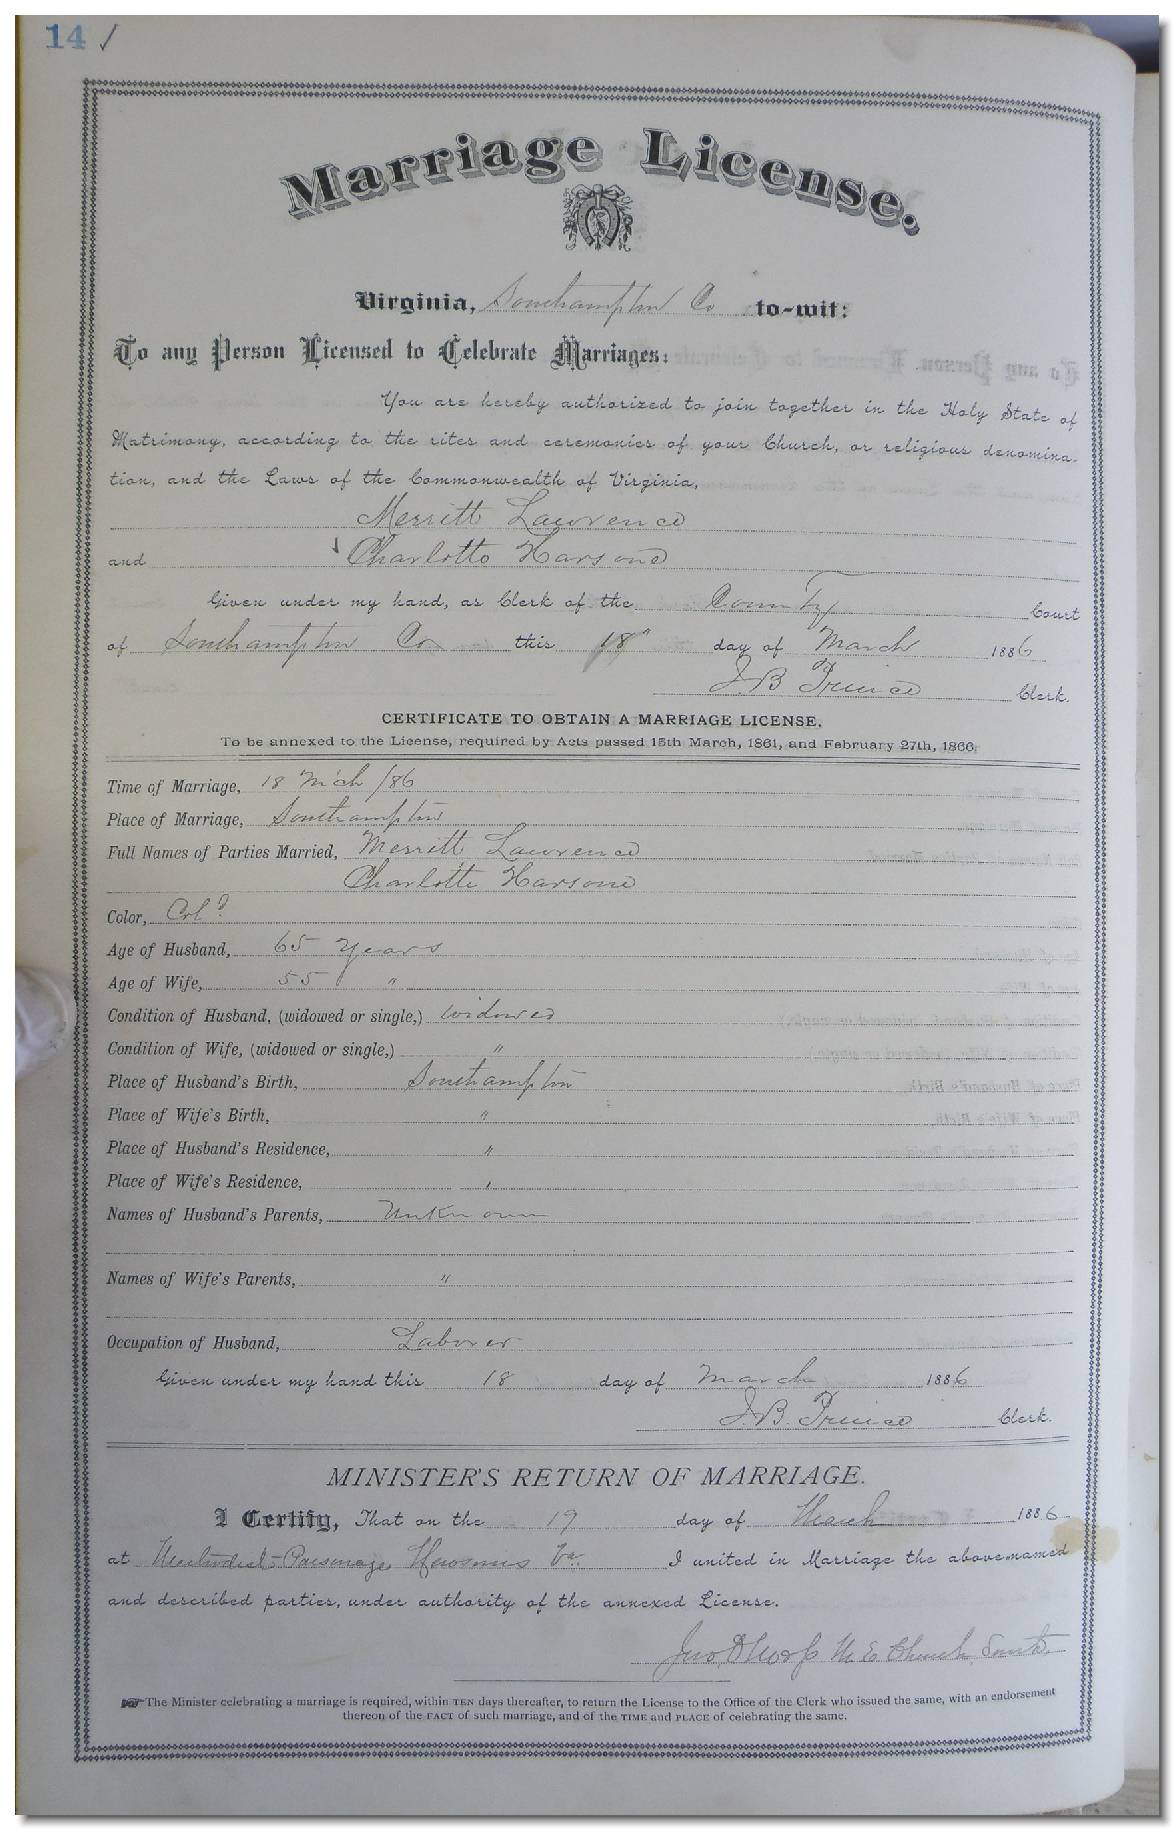 14 ✓
Marriage License.
Virginia, Southampton Co to-wit:
To any Person Licensed to Celebrate Marriages:
You are hereby authorized to join together in the Holy State of
Matrimony, according to the rites and ceremonies of your Church, or religious denomina-
tion, and the Laws of the Commonwealth of Virginia,
Merritt Lawrence
and Charlotte Harsone
Given under my hand, as Clerk of the County Court
of Southampton Co this 18" day of March 1886
J. B. Prince Clerk.
CERTIFICATE TO OBTAIN A MARRIAGE LICENSE.
To be annexed to the License, required by Acts passed 15th March, 1861, and February 27th, 1866.
Time of Marriage, 18 Mch /86
Place of Marriage, Southampton
Full Names of Parties Married, Merritt Lawrence
Charlotte Harsone
Color, Cold
Age of Husband, 65 years
Age of Wife, 55 "
Condition of Husband, (widowed or single,) widowed
Condition of Wife, (widowed or single,) "
Place of Husband's Birth, Southampton
Place of Wife's Birth, "
Place of Husband's Residence, "
Place of Wife's Residence, "
Names of Husband's Parents, Unknown
Names of Wife's Parents, "
Occupation of Husband, Laborer
Given under my hand this 18 day of March 1886
J. B. Prince Clerk.
MINISTER'S RETURN OF MARRIAGE.
I Certify, That on the 19 day of March 1886
at Methodist Parsonage Va. I united in Marriage the above-named
and described parties, under authority of the annexed License.
Jno M E Church South
The Minister celebrating a marriage is required, within TEN days thereafter, to return the License to the Office of the Clerk who issued the same, with an endorsement
thereon of the FACT of such marriage, and of the TIME and PLACE of celebrating the same.